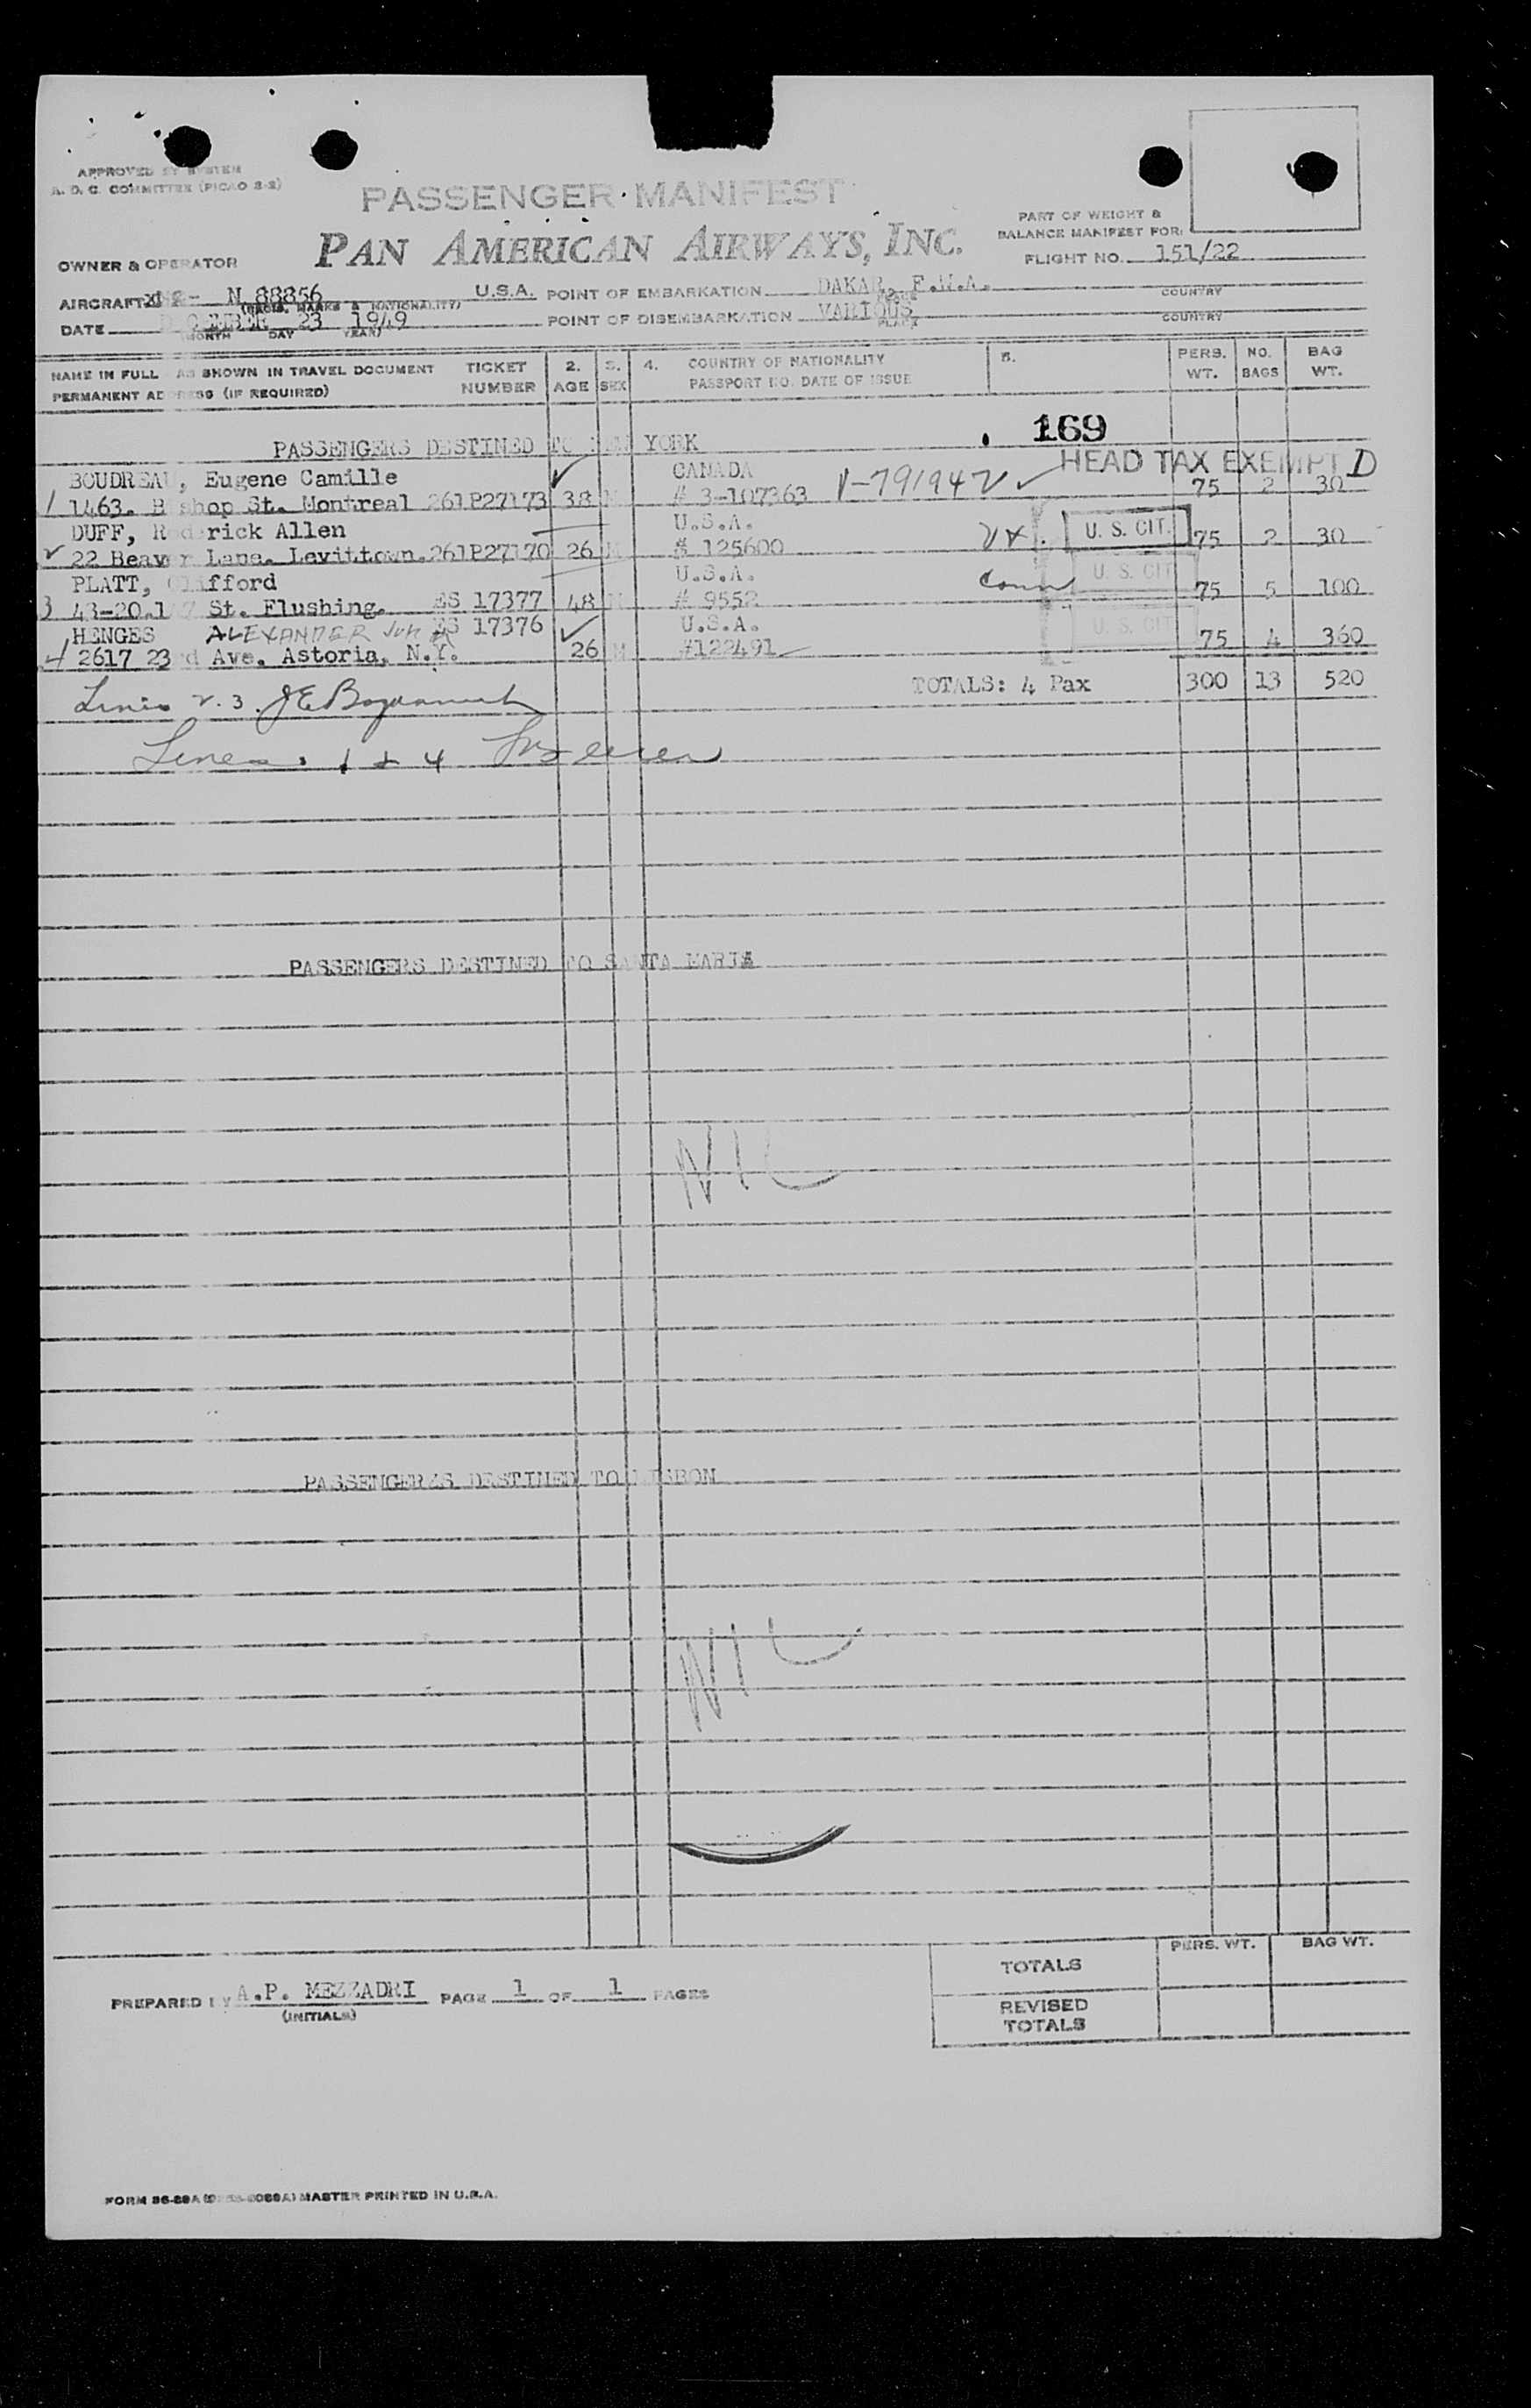 APPROVED BY SYSTEM
A. D. C. COMMITTEE (PICAO 2-2)
PASSENGER MANIFEST
PAN AMERICAN AIRWAYS, INC.
PART OF WEIGHT &
BALANCE MANIFEST FOR:
FLIGHT NO. 151/22
OWNER & OPERATOR
AIRCRAFT N 88856 U.S.A. POINT OF EMBARKATION DAKAR, F.W.A.
(REGIS. MARKS & NATIONALITY) PLACE COUNTRY
DATE DECEMBER 23 1949 POINT OF DISEMBARKATION VARIOUS
(MONTH DAY YEAR) PLACE COUNTRY
NAME IN FULL AS SHOWN IN TRAVEL DOCUMENT TICKET 2. 3. 4. COUNTRY OF NATIONALITY 5. PERS. NO. BAG
PERMANENT ADDRESS (IF REQUIRED) NUMBER AGE SEX PASSPORT NO. DATE OF ISSUE WT. BAGS WT.
169
PASSENGERS DESTINED TO NEW YORK
HEAD TAX EXEMPT D
BOUDREAU, Eugene Camille CANADA
1 1463. Bishop St. Montreal 261P27173 38 M # 3-107363 V-791942 75 2 30
DUFF, Roderick Allen U.S.A.
22 Beaver Lane. Levittown. 261P27170 26 M # 125600 U. S. CIT. 75 2 30
PLATT, Clifford U.S.A. U. S. CIT
3 43-20.147 St. Flushing. ES 17377 48 M # 9552 75 5 100
HENGES ALEXANDER John ES 17376 U.S.A. U. S. CIT
4 2617 23rd Ave. Astoria, N.Y. 26 M #122491 75 4 360
TOTALS: 4 Pax 300 13 520
Lines 2. 3.
Lines 1 & 4
PASSENGERS DESTINED TO SANTA MARIA
NIL
PASSENGERS DESTINED TO LISBON
NIL
PERS. WT. BAG WT.
TOTALS
REVISED
TOTALS
PREPARED BY A.P. MEZZADRI PAGE 1 OF 1 PAGES
(INITIALS)
MASTER PRINTED IN U.S.A.